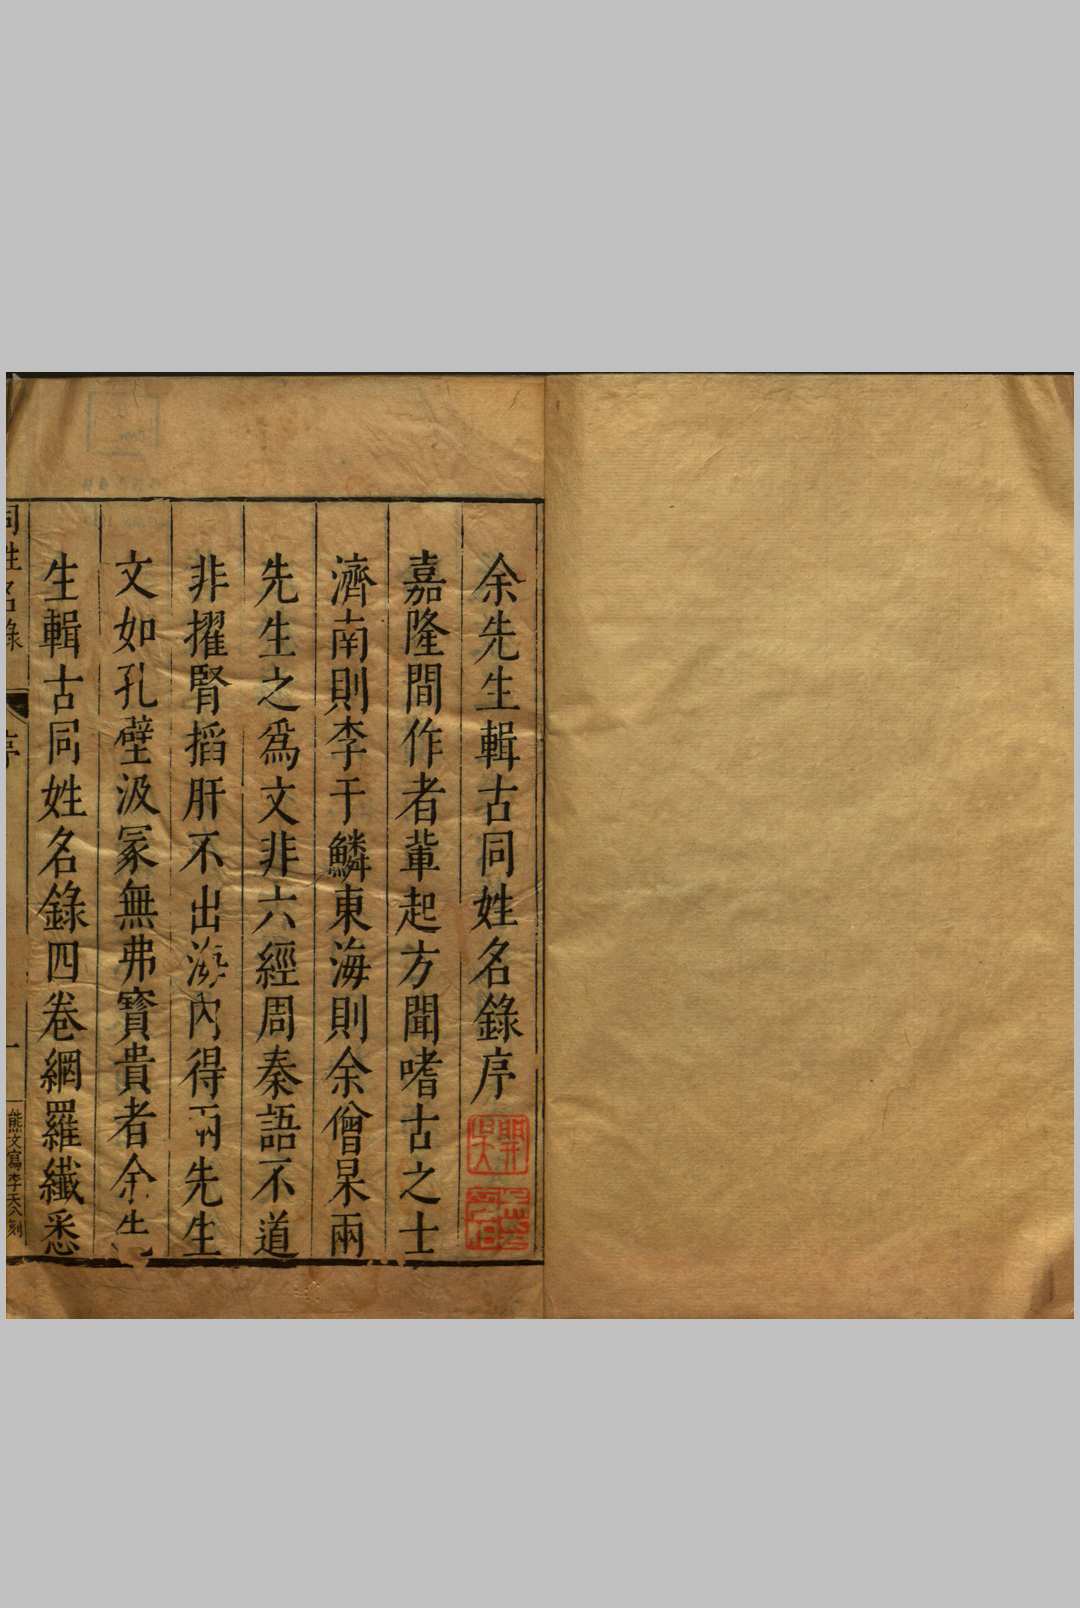 余先生輯古同姓名錄序
嘉隆間作者輩起方聞嗜古之士
濟南則李于鱗東海則余僧杲兩
先生之爲文非六經周秦語不道
非擢腎搯肝不出海內得兩先生
文如孔壁汲冢無弗寶貴者余先
生輯古同姓名錄四卷網羅纖悉
同姓名錄
序
一
熊文寫李天公刻